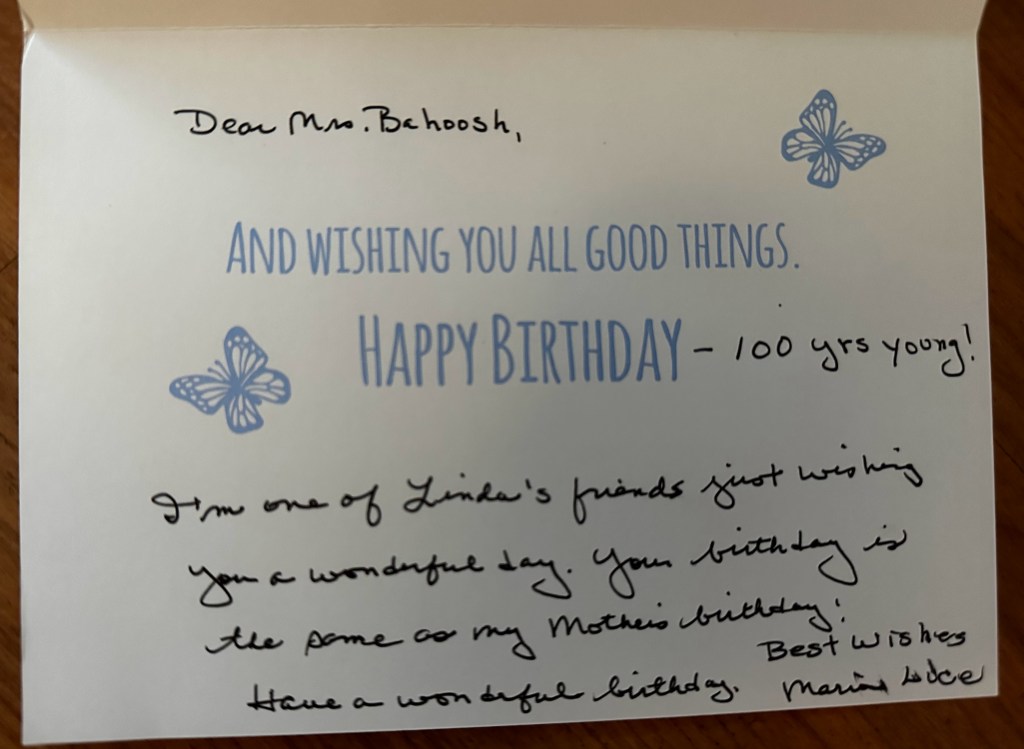 Dear Mrs. Bahoosh,
AND WISHING YOU ALL GOOD THINGS.
HAPPY BIRTHDAY – 100 yrs young!
I'm one of Linda's friends just wishing
you a wonderful day. Your birthday is
the same as my Mother's birthday!
Have a wonderful birthday.
Best Wishes